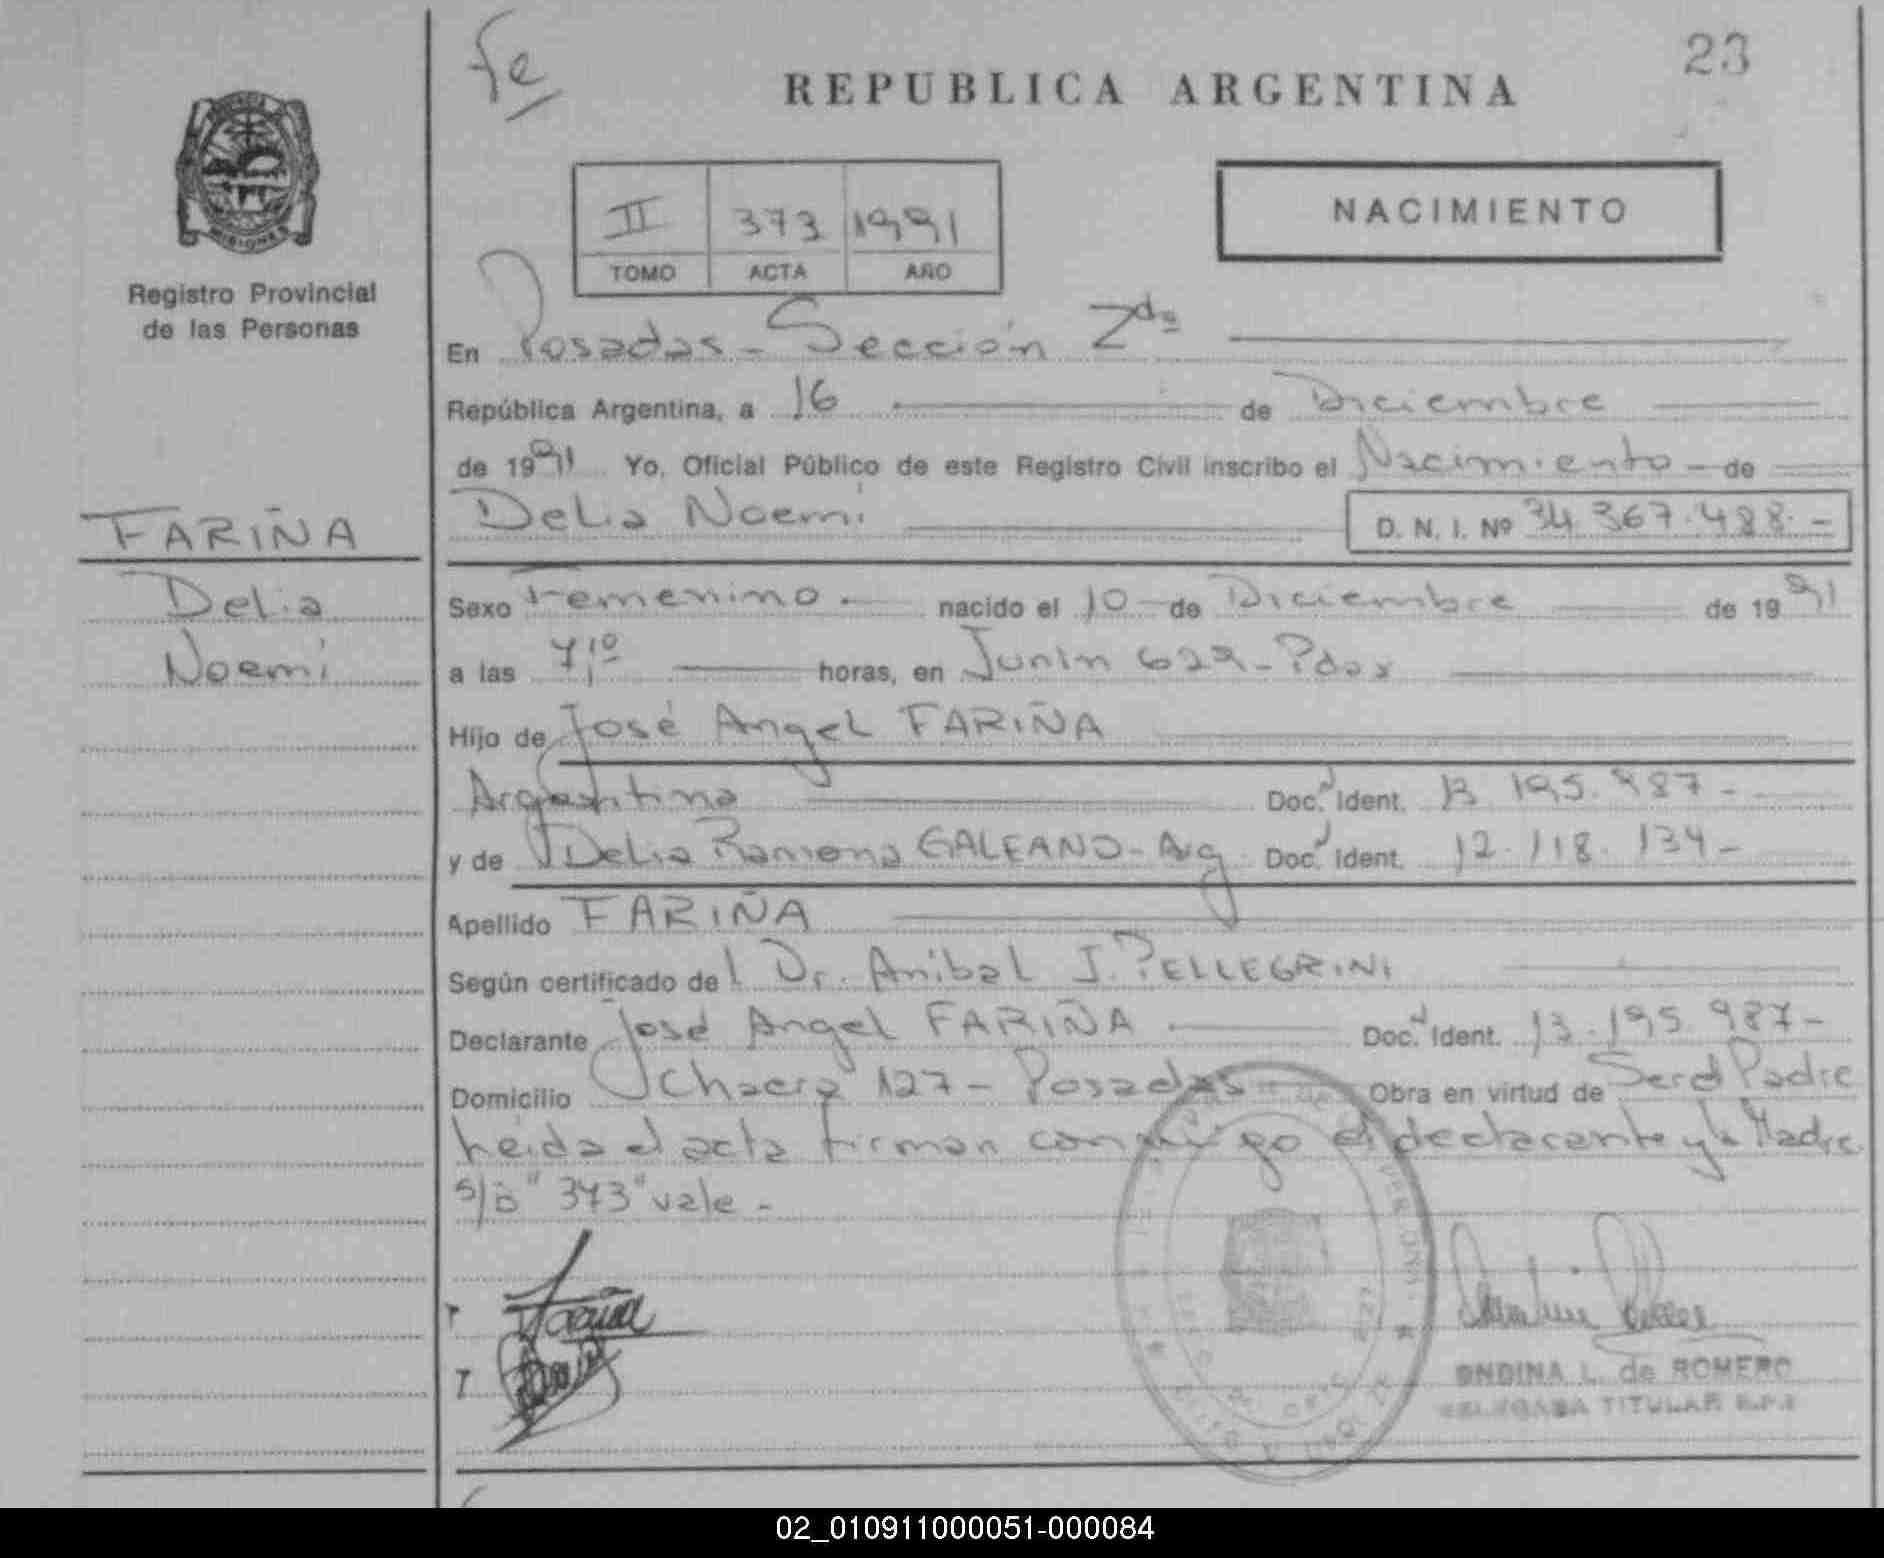 Fe
23
REPUBLICA ARGENTINA
MISIONES
Registro Provincial
de las Personas
II 373 1991
TOMO ACTA AÑO
NACIMIENTO
En Posadas - Sección 2da
República Argentina, a 16 de Diciembre
de 1991 Yo, Oficial Público de este Registro Civil inscribo el Nacimiento - de
FARIÑA
Delia Noemi
D. N. I. Nº 34.367.488.-
Delia
Noemi
Sexo Femenino.- nacido el 10 - de Diciembre de 1991
a las 7,10 horas, en Junin 629 - Pdas
Hijo de José Angel FARIÑA
Argentino Doc. Ident. 13.195.987-
y de Delia Ramona GALEANO - Arg Doc. Ident. 12.118.134-
Apellido FARIÑA
Según certificado del Dr. Anibal J. PELLEGRINI
Declarante José Angel FARIÑA Doc. Ident. 13.195.987-
Domicilio Chacra 127 - Posadas - Obra en virtud de Ser el Padre
Leida el acta firman conmigo el declarante y la Madre.
s/b "373" vale -
Fariña
ONDINA L. de ROMERO
DELEGADA TITULAR R.P.P.
02_010911000051-000084